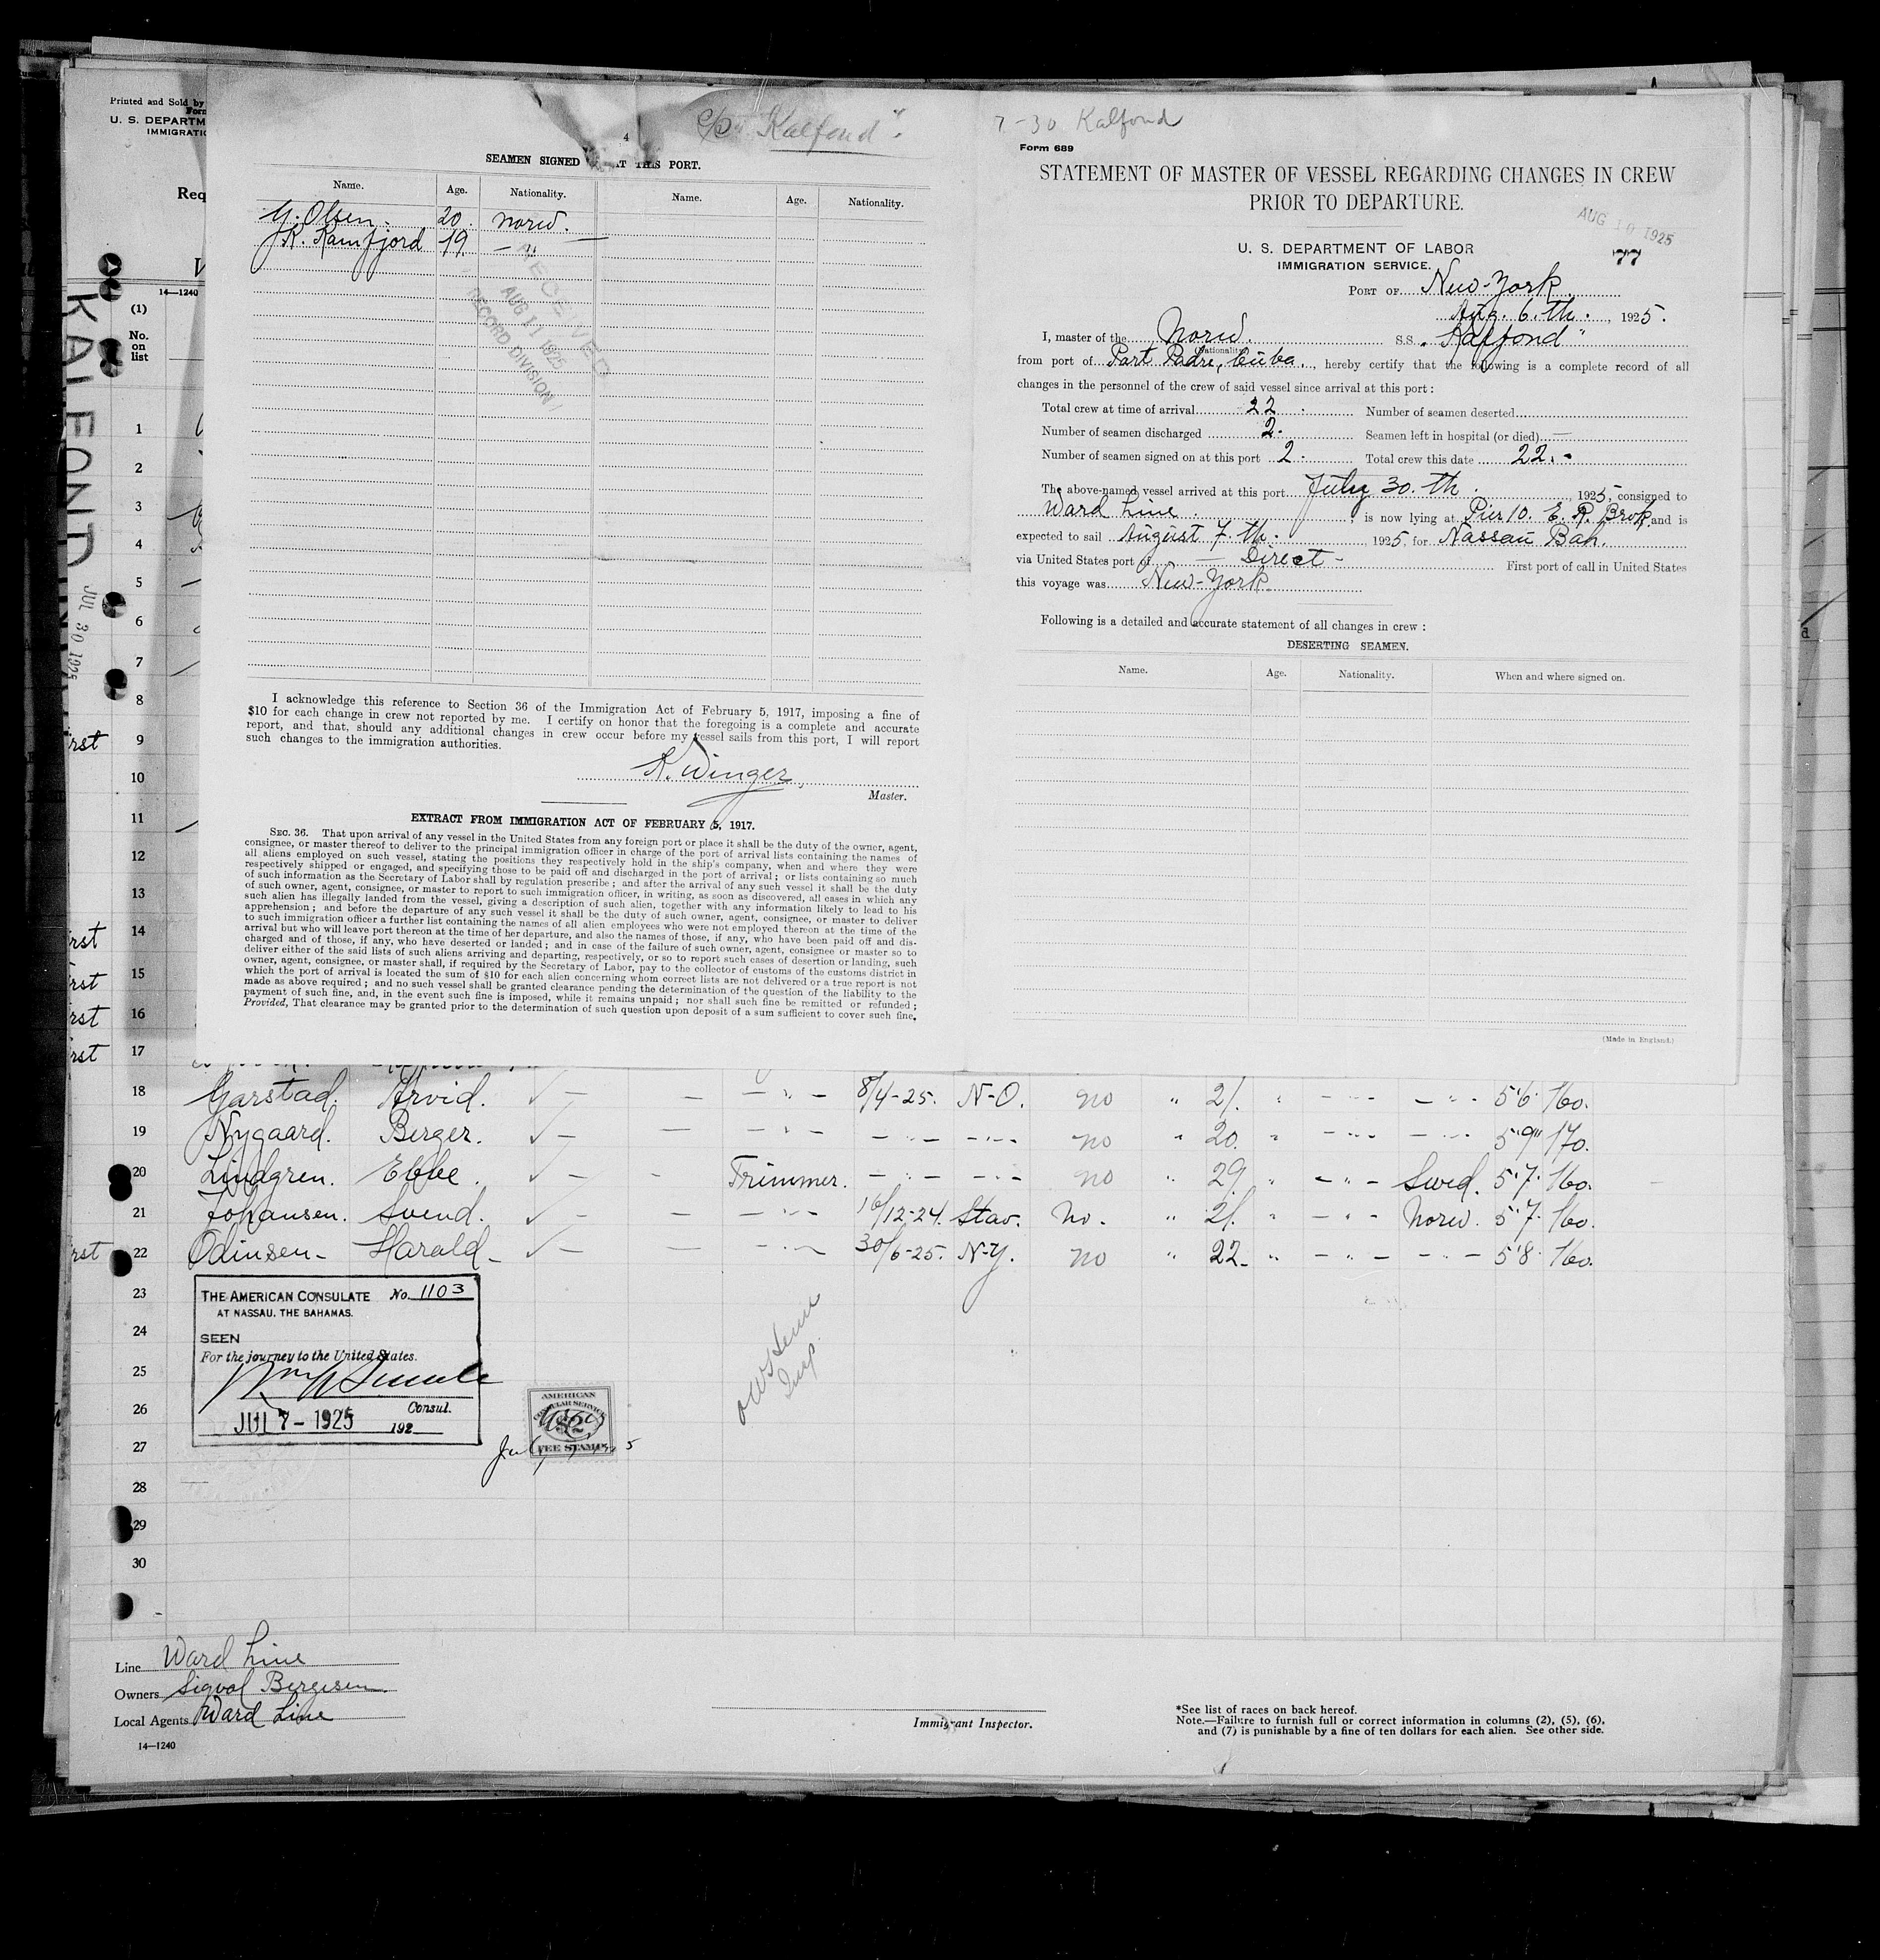 Printed and Sold by
Form
U. S. DEPARTM
IMMIGRATIO
Req
14—1240
(1)
No.
on
list
KALFOND
JUL 30 1925
4
S/S "Kalfond".
SEAMEN SIGNED AT THIS PORT.
Name. Age. Nationality. Name. Age. Nationality.
G. Olsen. 20. norw.
K. Ramfjord 19. — " —
RECEIVED
AUG 11 1925
RECORD DIVISION
I acknowledge this reference to Section 36 of the Immigration Act of February 5, 1917, imposing a fine of
$10 for each change in crew not reported by me. I certify on honor that the foregoing is a complete and accurate
report, and that, should any additional changes in crew occur before my vessel sails from this port, I will report
such changes to the immigration authorities.
K. Winger
Master.
EXTRACT FROM IMMIGRATION ACT OF FEBRUARY 5, 1917.
SEC. 36. That upon arrival of any vessel in the United States from any foreign port or place it shall be the duty of the owner, agent,
consignee, or master thereof to deliver to the principal immigration officer in charge of the port of arrival lists containing the names of
all aliens employed on such vessel, stating the positions they respectively hold in the ship's company, when and where they were
respectively shipped or engaged, and specifying those to be paid off and discharged in the port of arrival; or lists containing so much
of such information as the Secretary of Labor shall by regulation prescribe; and after the arrival of any such vessel it shall be the duty
of such owner, agent, consignee, or master to report to such immigration officer, in writing, as soon as discovered, all cases in which any
such alien has illegally landed from the vessel, giving a description of such alien, together with any information likely to lead to his
apprehension; and before the departure of any such vessel it shall be the duty of such owner, agent, consignee, or master to deliver
to such immigration officer a further list containing the names of all alien employees who were not employed thereon at the time of the
arrival but who will leave port thereon at the time of her departure, and also the names of those, if any, who have been paid off and dis-
charged and of those, if any, who have deserted or landed; and in case of the failure of such owner, agent, consignee or master so to
deliver either of the said lists of such aliens arriving and departing, respectively, or so to report such cases of desertion or landing, such
owner, agent, consignee, or master shall, if required by the Secretary of Labor, pay to the collector of customs of the customs district in
which the port of arrival is located the sum of $10 for each alien concerning whom correct lists are not delivered or a true report is not
made as above required; and no such vessel shall be granted clearance pending the determination of the question of the liability to the
payment of such fine, and, in the event such fine is imposed, while it remains unpaid; nor shall such fine be remitted or refunded;
Provided, That clearance may be granted prior to the determination of such question upon deposit of a sum sufficient to cover such fine.
7-30 Kalfond
Form 689
STATEMENT OF MASTER OF VESSEL REGARDING CHANGES IN CREW
PRIOR TO DEPARTURE.
AUG 10 1925
U. S. DEPARTMENT OF LABOR
IMMIGRATION SERVICE.
77
PORT OF New-York
Aug. 6.th., 1925.
I, master of the Norw. S.S. "Kalfond"
(Nationality)
from port of Port Padre, Cuba., hereby certify that the following is a complete record of all
changes in the personnel of the crew of said vessel since arrival at this port:
Total crew at time of arrival 22. Number of seamen deserted
Number of seamen discharged 2. Seamen left in hospital (or died) —
Number of seamen signed on at this port 2. Total crew this date 22.-
The above-named vessel arrived at this port July 30.th., 1925, consigned to
Ward Line., is now lying at Pier 10. E. R. Brok, and is
expected to sail August 7.th., 1925, for Nassau Bah.
via United States port of — Direct — First port of call in United States
this voyage was New-York.
Following is a detailed and accurate statement of all changes in crew:
DESERTING SEAMEN.
Name. Age. Nationality. When and where signed on.
(Made in England.)
1
2
3
4
5
6
7
8
rst 9
10
11
12
13
rst 14
rst 15
rst 16
rst 17
18 Garstad. Arvid. ✓ — — — " — 8/4-25. N-O. no " 21. " — " — — " — 5'6 160.
19 Nygaard. Berger. ✓ — — — " — — " — — " — no " 20. " — " — — " — 5'9" 170.
20 Lindgren. Ebbe. ✓ — — Trimmer. — " — — " — no " 29. " — " — Swed. 5'7 160.
21 Johansen. Svend. ✓ — — — " — 16/12-24. Stav. no. " 21. " — " — Norw. 5'7 160.
rst 22 Odinsen- Harald- ✓ — — — " — 30/6-25. N-Y. no " 22- " — " — — " — 5'8 160.
23
24
25
26
27
28
29
30
THE AMERICAN CONSULATE No. 1103
AT NASSAU, THE BAHAMAS.
SEEN
For the journey to the United States.
Consul.
JUL 7 - 1925 192
AMERICAN
CONSULAR SERVICE
FEE STAMP
Line Ward Line
Owners Sigval Bergesen.
Local Agents Ward Line
14—1240
Immigrant Inspector.
*See list of races on back hereof.
Note.—Failure to furnish full or correct information in columns (2), (5), (6),
and (7) is punishable by a fine of ten dollars for each alien. See other side.